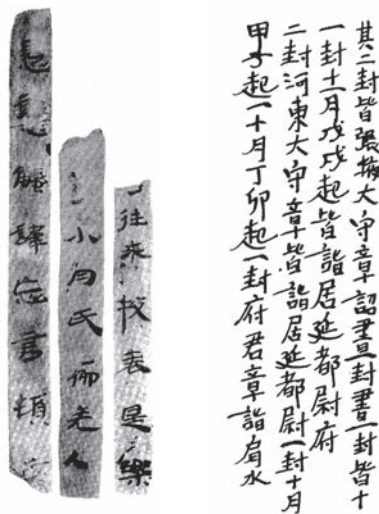 其二封皆張掖大守章詔書一封書一封皆十
一封十一月戊戌起皆詣居延都尉府
二封河東大守章皆詣居延都尉一封十月
甲子起一十月丁卯起一封府君章詣肩水
往來技表是樂
小月氏柳羌人
譯忘言